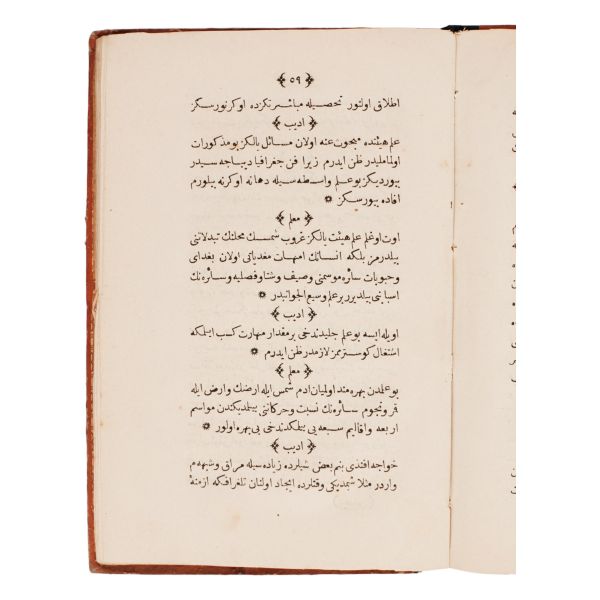 ﴿ ٥٩ ﴾
اطلاق اولنور تحصیله مباشرتکزده اوکرنورسکز
﴿ ادیب ﴾
علم هیئتده مبحوث عنه اولان مسائل یالکز بو مذکورات
اولماملیدر ظن ایدرم زیرا فن جغرافیا دیباجه سیدر
بیوردیکز بو علم واسطه سیله دها نه اوکرنه بیلورم
افاده بیورسکز ۞
﴿ معلم ﴾
اوت اوغلم علم هیئت یالکز غروب شمسك محلنك تبدلاتنی
بیلدرمز بلکه انسانك امهات مغدیاتی اولان بغدای
وحبوبات سائره موسمنی وصیف وشتا وفصلیه وسائره نك
اسبابنی بیلدیرر بر علم وسیع الجوانبدر ۞
﴿ ادیب ﴾
اویله ایسه بو علم جلیلدن دخی بر مقدار مهارت کسب ایملکه
اشتغال کوسترمز لازمدر ظن ایدرم ۞
﴿ معلم ﴾
بو علمدن بهره مند اولمیان ادم شمس ایله ارضك وارض ایله
قمر ونجوم سائره نك نسبت وحرکاتنی بیلمدیکندن مواسم
اربعه واقالیم سبعه یی بیلمکدن دخی بی بهره اولور ۞
﴿ ادیب ﴾
خواجه افندی بنم بعض شیلرده زیاده سیله مراق وشبهه م
واردر مثلا شمدیکی وقتلرده ایجاد اولنان تلغرافکه ازمنهٔ